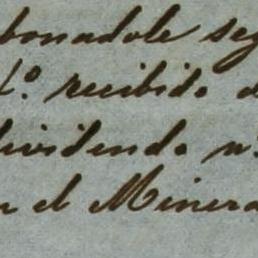 bonadole seg
l.º recibido d
dividendo nº
n el Minera